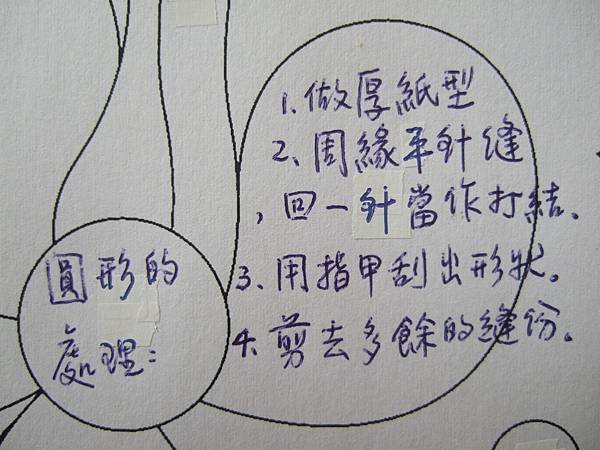 圓形的
處理:
1、做厚紙型
2、周緣平針縫
,回一針當作打結、
3、用指甲刮出形狀。
4、剪去多餘的縫份。